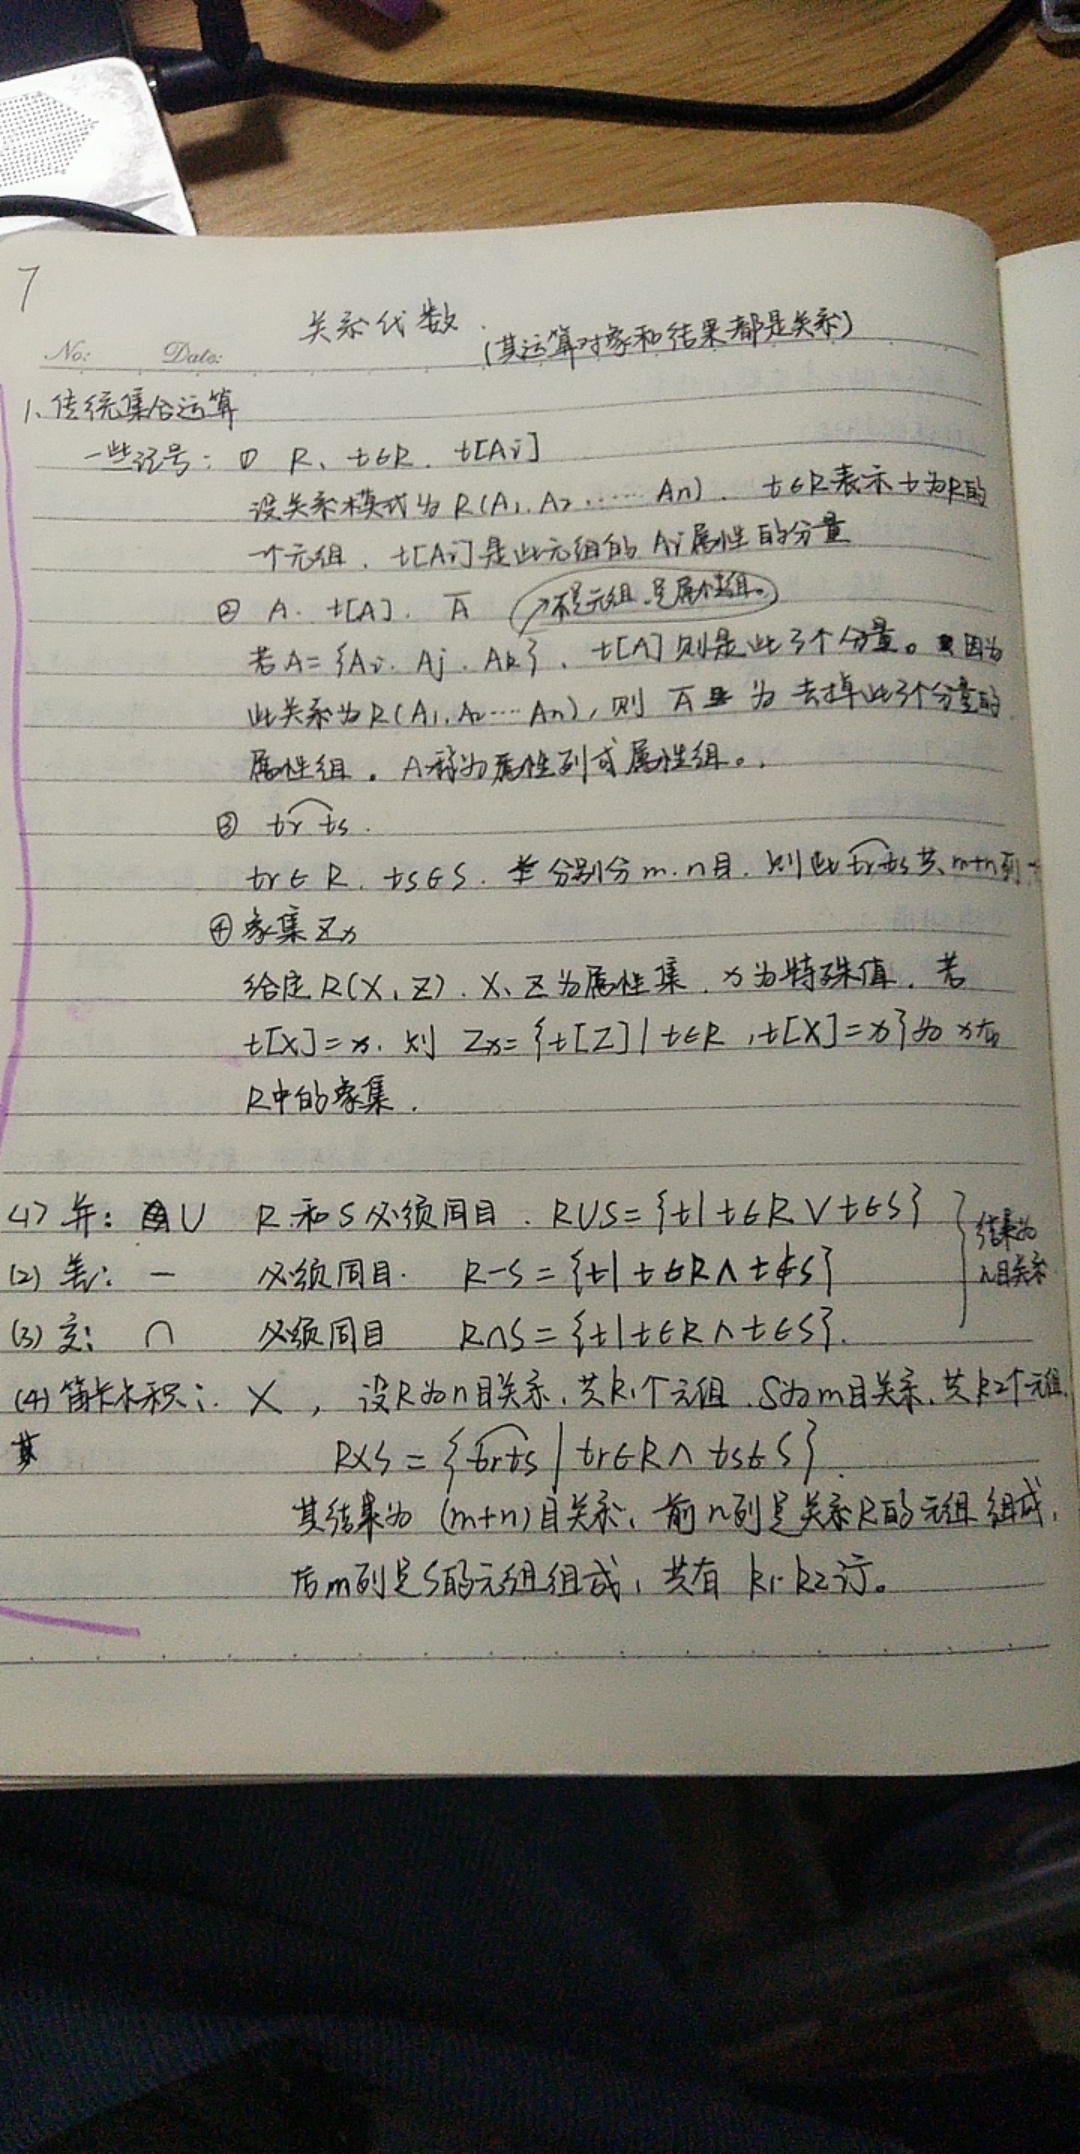 7
关系代数
(其运算对象和结果都是关系)
No: Date:
1、传统集合运算
一些记号: ① R、t∈R、t[Ai]
设关系模式为R(A1、A2……An)、t∈R表示t为R的
一个元组、t[Ai]是此元组的Ai属性的分量
② A、t[A]、A̅ (↗不是元组,是属性组。)
若A={Ai、Aj、Ak}、t[A]则是此3个分量。因为
此关系为R(A1,A2…An),则A̅为去掉此3个分量的
属性组。A称为属性列或属性组。
③ t͡r ts.
tr∈R、ts∈S、分别分m、n目、则此t͡rts共m+n列
④ 象集Zx
给定R(X、Z)、X、Z为属性集、x为特殊值、若
t[X]=x、则 Zx={t[Z]|t∈R,t[X]=x}为x在
R中的象集.
(1) 并: ∪ R和S必须同目. R∪S={t|t∈R∨t∈S}
(2) 差: — 必须同目. R-S={t|t∈R∧t∉S}
(3) 交: ∩ 必须同目 R∩S={t|t∈R∧t∈S}.
结果为
n目关系
(4) 笛卡尔积: ×, 设R为n目关系、共k1个元组、S为m目关系、共k2个元组.
其
R×S={t͡rts|tr∈R∧ts∈S}.
其结果为(m+n)目关系、前n列是关系R的元组组成,
后m列是S的元组组成,共有k1·k2行。